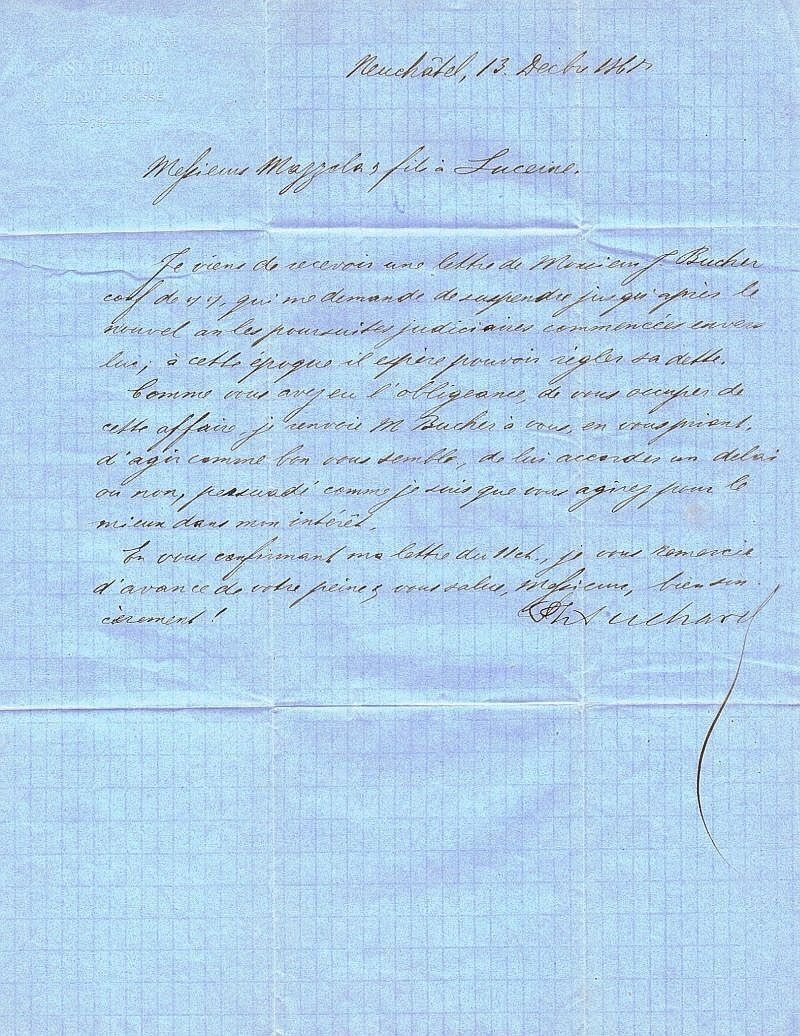 Neuchâtel, 13. Decbre 186
Messieurs Mazzola & fils à Lucerne.
Je viens de recevoir une lettre de Monsieur J. Bucher
conf de qui me demande de suspendre jusqu'après le
nouvel an les poursuites judiciaires commencées envers
lui; à cette époque il espère pouvoir régler sa dette.
Comme vous avez eu l'obligeance, de vous occuper de
cette affaire, je renvoie M Bucher à vous, en vous priant,
d'agir comme bon vous semble, de lui accorder un délai
ou non, persuadé comme je suis que vous agirez pour le
mieux dans mon intérêt.
En vous confirmant ma lettre du 11 ct., je vous remercie
d'avance de votre peine & vous salue, Messieurs, bien sin-
cèrement!
Ph Suchard